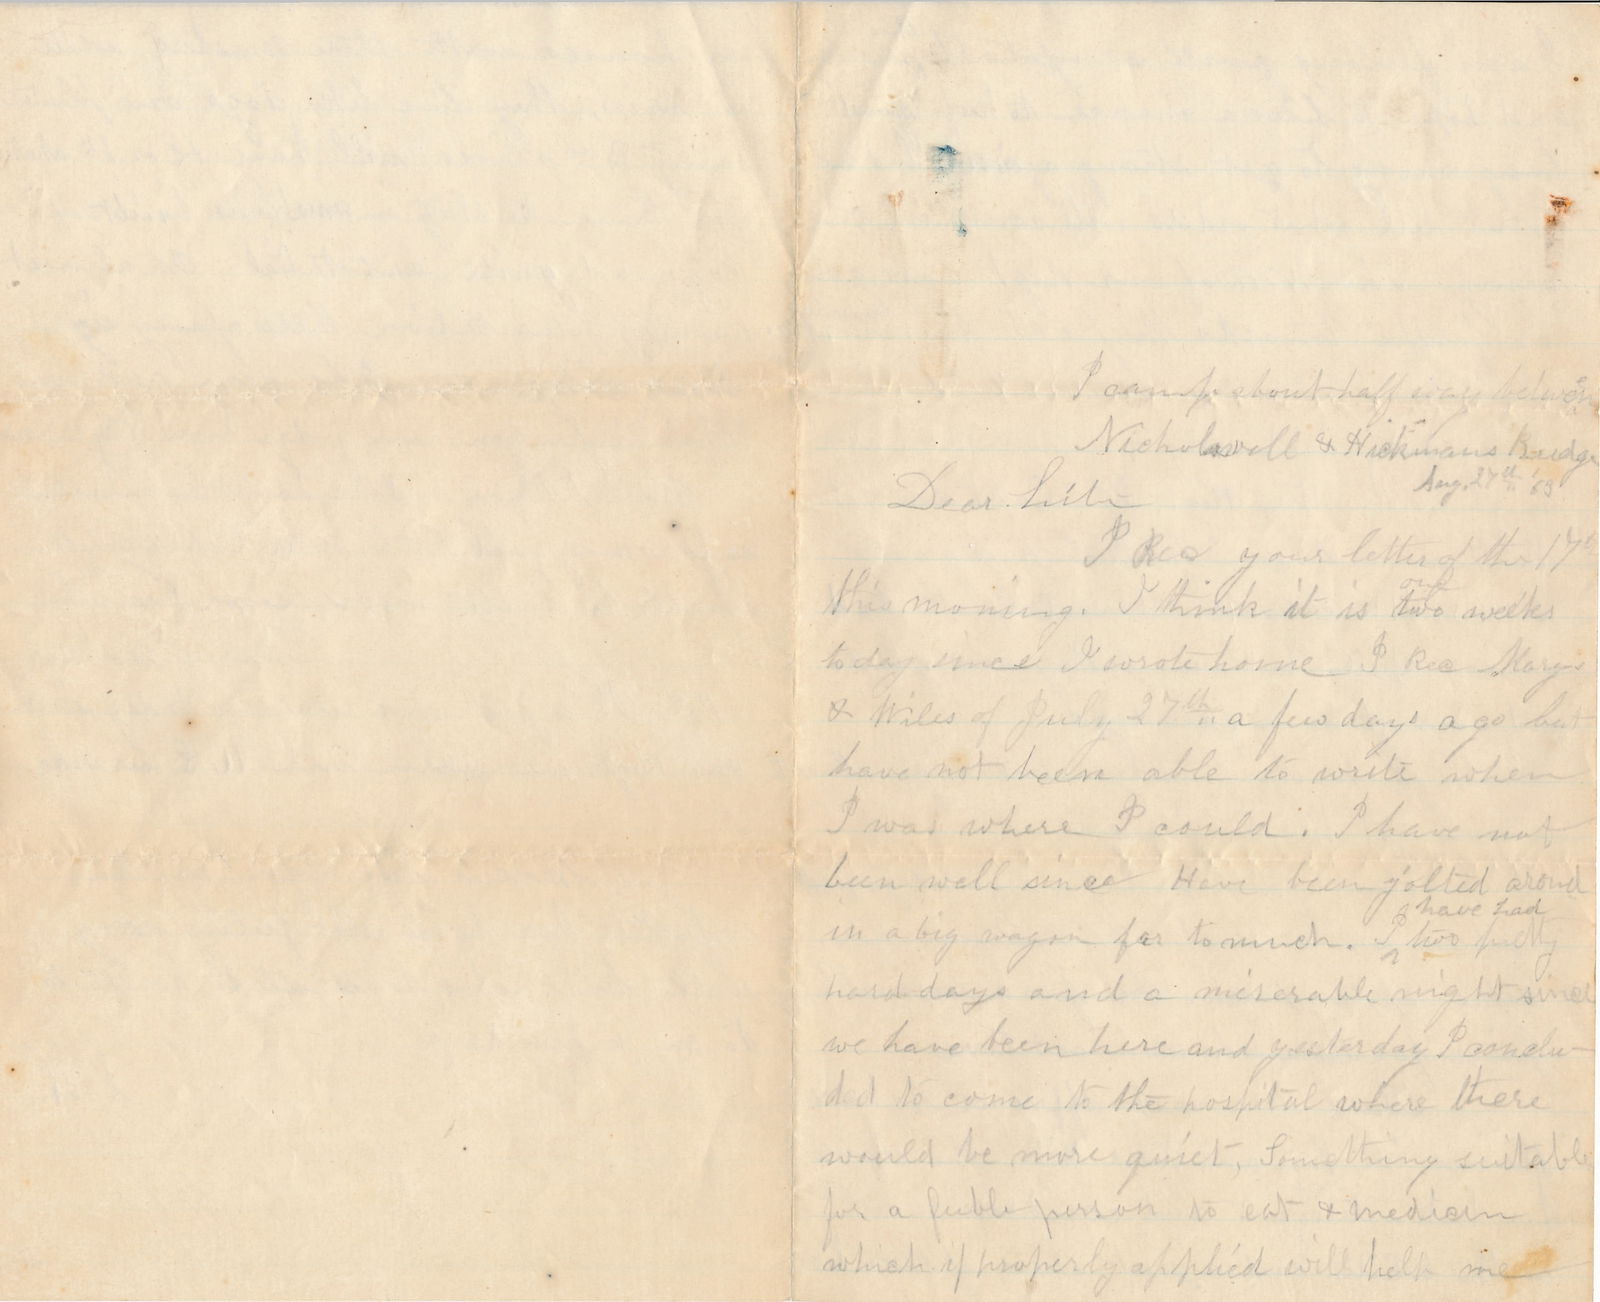 I camp about half way between
Nicholsvill & Hickmans Bridge
Aug. 27th '63
Dear
I Rec your letter of the 17th
this morning. I think it is one two weeks
today since I wrote home I Rec Marys
& Wiles of July 27th a few days ago but
have not been able to write when
I was where I could. I have not
been well since Have been jolted around
in a big wagon far to much. I have had two pretty
hard days and a miserable night since
we have been here and yesterday I conclu-
ded to come to the hospital where there
would be more quiet, Something suitable
for a feeble person to eat & medicin
which if properly applied will help me